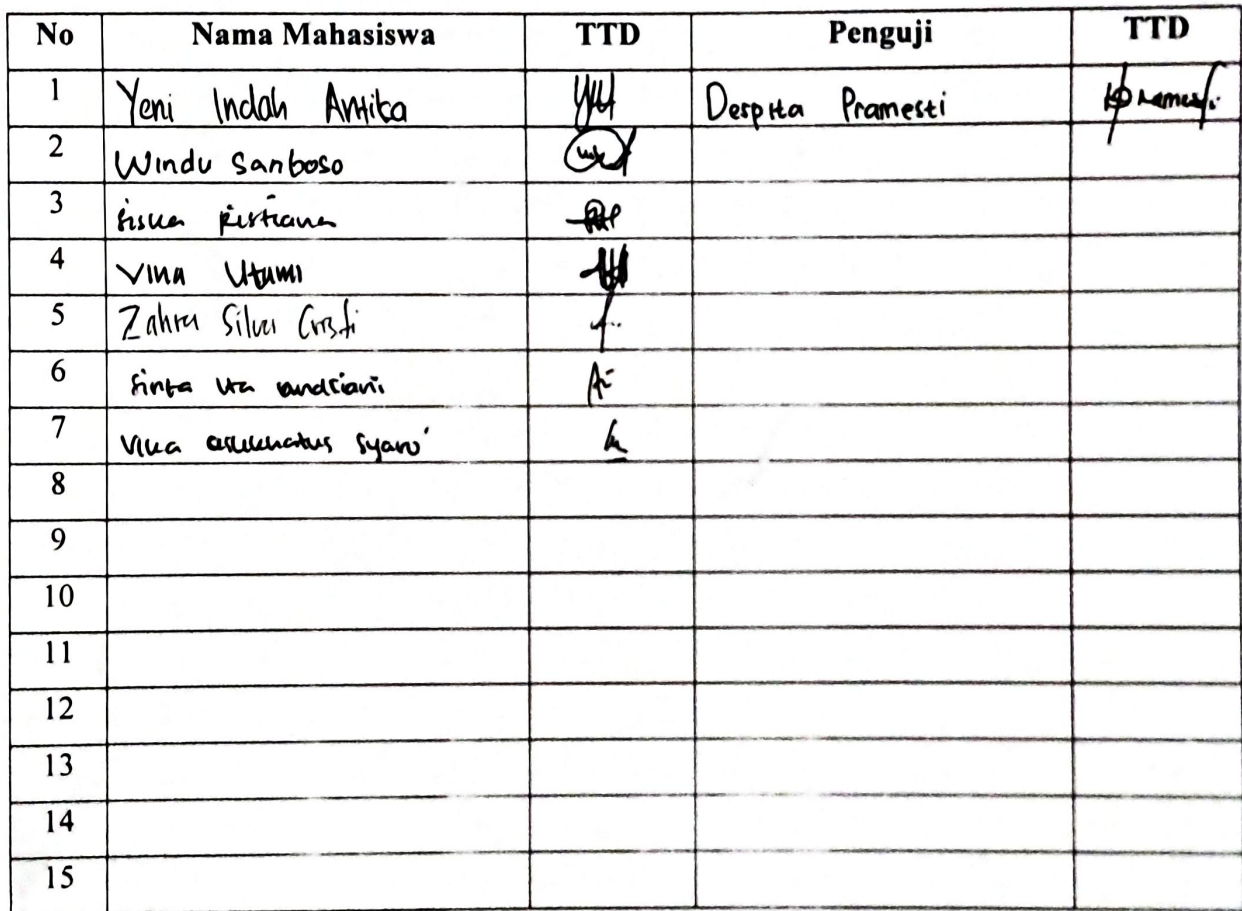 No Nama Mahasiswa TTD Penguji TTD
1 Yeni Indah Antika Despita Pramesti
2 Windu Sanboso
3 Siska Ristiana
4 Vina Utami
5 Zahra Silva Cristi
6 Sinta andriani
7 Vika syaro'
8
9
10
11
12
13
14
15